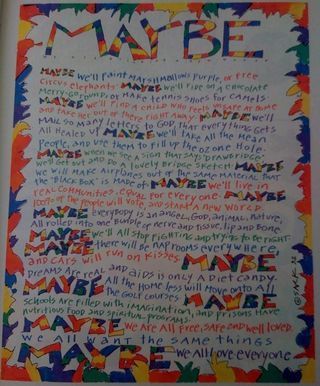 MAYBE
MAYBE we'll paint marshmallows purple, or free
circus elephants MAYBE we'll ride on a chocolate
merry-go-round, or make tennis shoes for camels.
MAYBE we'll find a child who feels unsafe at home
and take her out of there right away MAYBE we'll
mail so many letters to God, that everything gets
all healed up MAYBE we'll take all the mean
people, and use them to fill up the ozone hole
MAYBE when we see a sign that says "drawbridge"
we'll get out and do a lovely bridge sketch MAYBE
we will make airplanes out of the same material that
the "black box" is made of MAYBE we'll live in
real communities, equal for everyone. MAYBE
100% of the people will vote and start a new world.
MAYBE everybody is an angel, God, animal, nature,
all rolled into one bundle of nerve and tissue, lip and bone.
MAYBE we'll all stop fighting and trying to be right.
MAYBE there will be nap rooms everywhere,
and cars will run on kisses MAYBE
dreams are real and AIDS is only a diet candy.
MAYBE all the homeless will move onto all
the golf courses MAYBE
schools are filled with imagination, and prisons have
nutritious food and spiritual programs.
MAYBE we are all free, safe and well loved.
we all want the same things
MAYBE we all love everyone